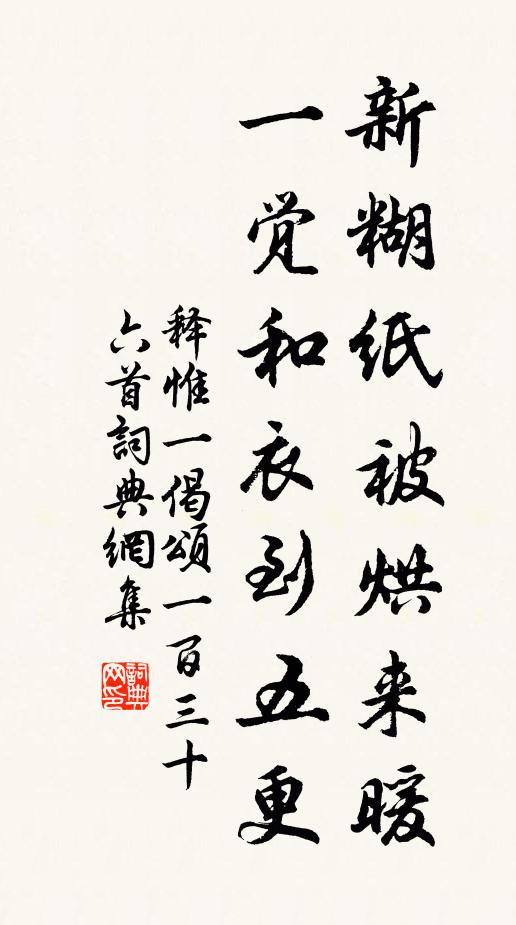 新糊紙被烘来暖
一覚和衣到五更
释惟一偈頌一百三十
六首詞典網集
詞典
网印